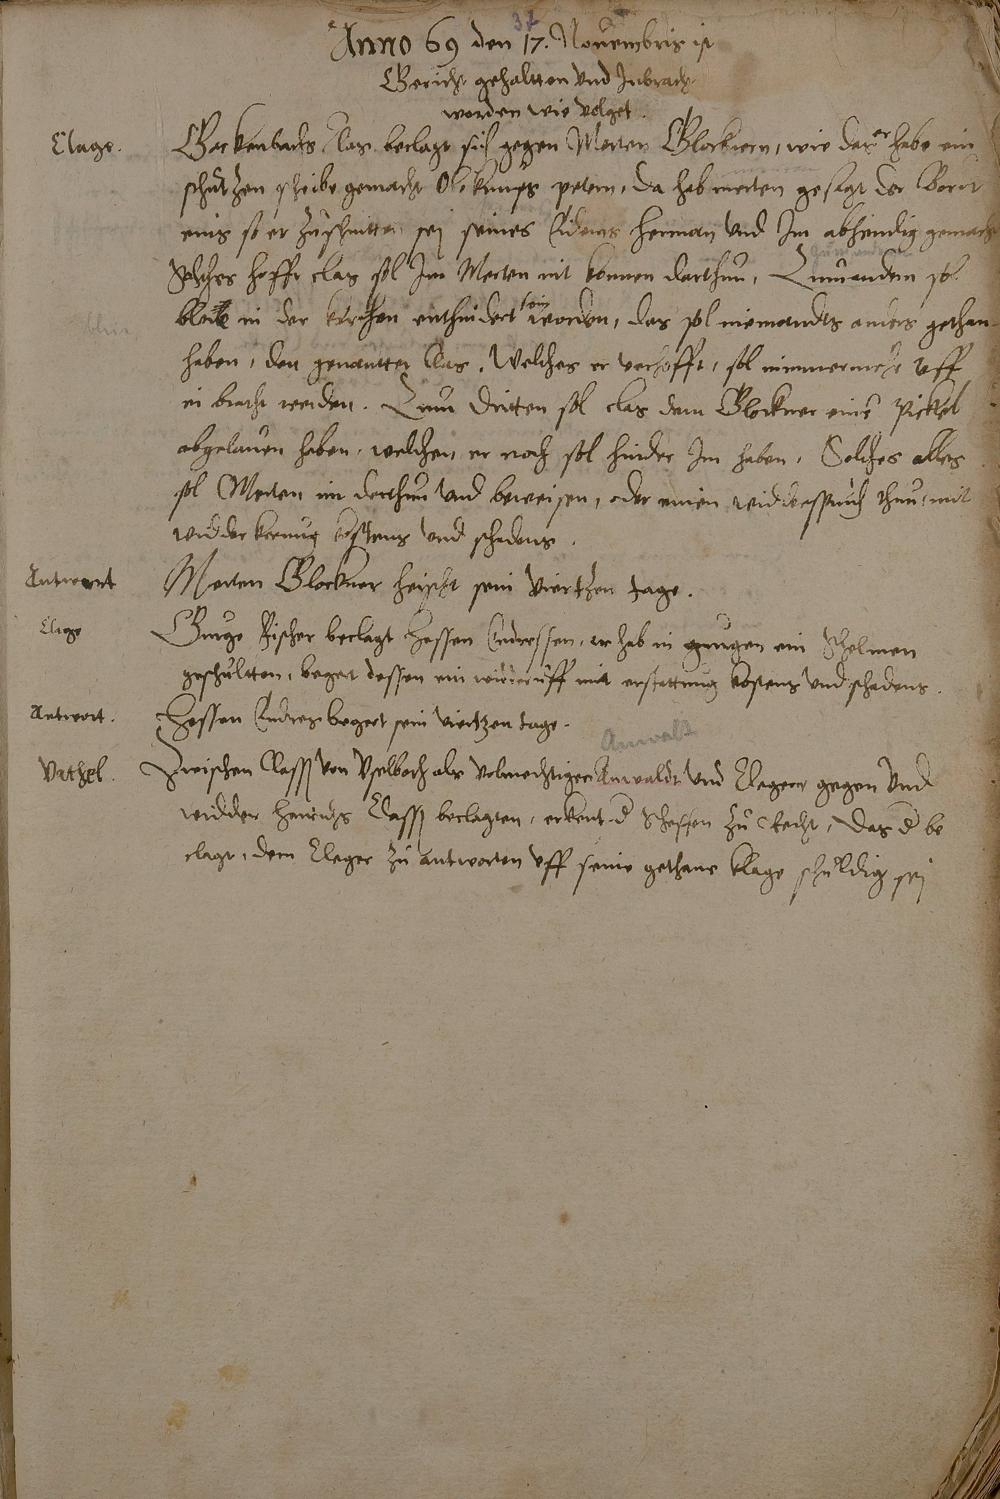 37
Anno 69 den 17. Nouembris ist
Gericht gehaltten vnd Inbracht
worden wie volget.
Clage. Backenbachs Clas beclagt sich gegen Merten Glocknern, wie das er habe ein
schutzen scheibe gemacht petern, da hab merten gesagt der
eins so er zuschnitten sej seines Eidems Herman vnd Im abhendig gemacht
Solches hofft clas sol Im Merten nit konnen darthun, Zum andern sol
in der kirchen enthindert sein worden, das sol niemandts anders gethan
haben, den genantter Clas. Welches er verhofft, sol nimmermehr vff
in bracht werden. Zum dritten sol clas dem Glockner eine Pickel
haben, welchen er noch sol hinder Im haben. Solches alles
sol Merten im darthun vnd beweisen, oder einen widderspruch thun, mit
widderkerung kostens vnd schadens.
Antwort Merten Glockner heischt sein viertzhen tage.
Clage Gurge Fischer beclagt Hessen Endressen, er hab in gurgen ein Schelmen
geschultten, begert dessen ein widderuff mit erstattung kostens vnd schadens.
Antwort. Hessen Endres begert sein viertzen tage.
Anwalt
Vrthel. Zwischen Classz von Vselbach als volmechtigen Anwaldt vnd Cleger gegen vnd
widder Heinrichs Classz beclagten, erkent d Scheffen zu Recht, das d be
clagt, dem Cleger zu antworten vff seine gethane klage schuldig sej